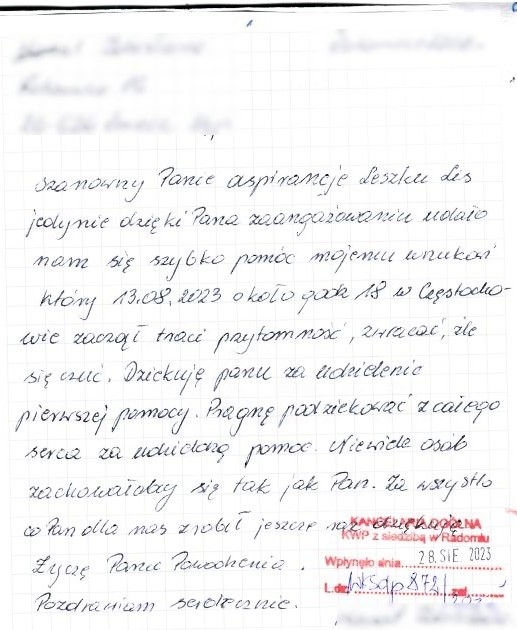 Szanowny Panie aspirancie Leszku Lis
jedynie dzięki Pana zaangażowaniu udało
nam się szybko pomóc mojemu wnukowi
który 13.08.2023 około godz 18 w Częstocho-
wie zaczął traci przytomność, zwracać, źle
się czuć. Dziekuję panu za udzielenie
pierwszej pomocy. Pragnę podziekować z całego
serca za udzieloną pomoc. Niewiele osób
zachowałoby się tak jak Pan. Za wszystko
co Pan dla nas zrobił jeszcze raz dziękuję
Życzę Panu Powodzenia.
Pozdrawiam serdecznie.
KANCELARIA OGÓLNA
KWP z siedzibą w Radomiu
Wpłynęło dnia 28. SIE. 2023
L.dz. zał.